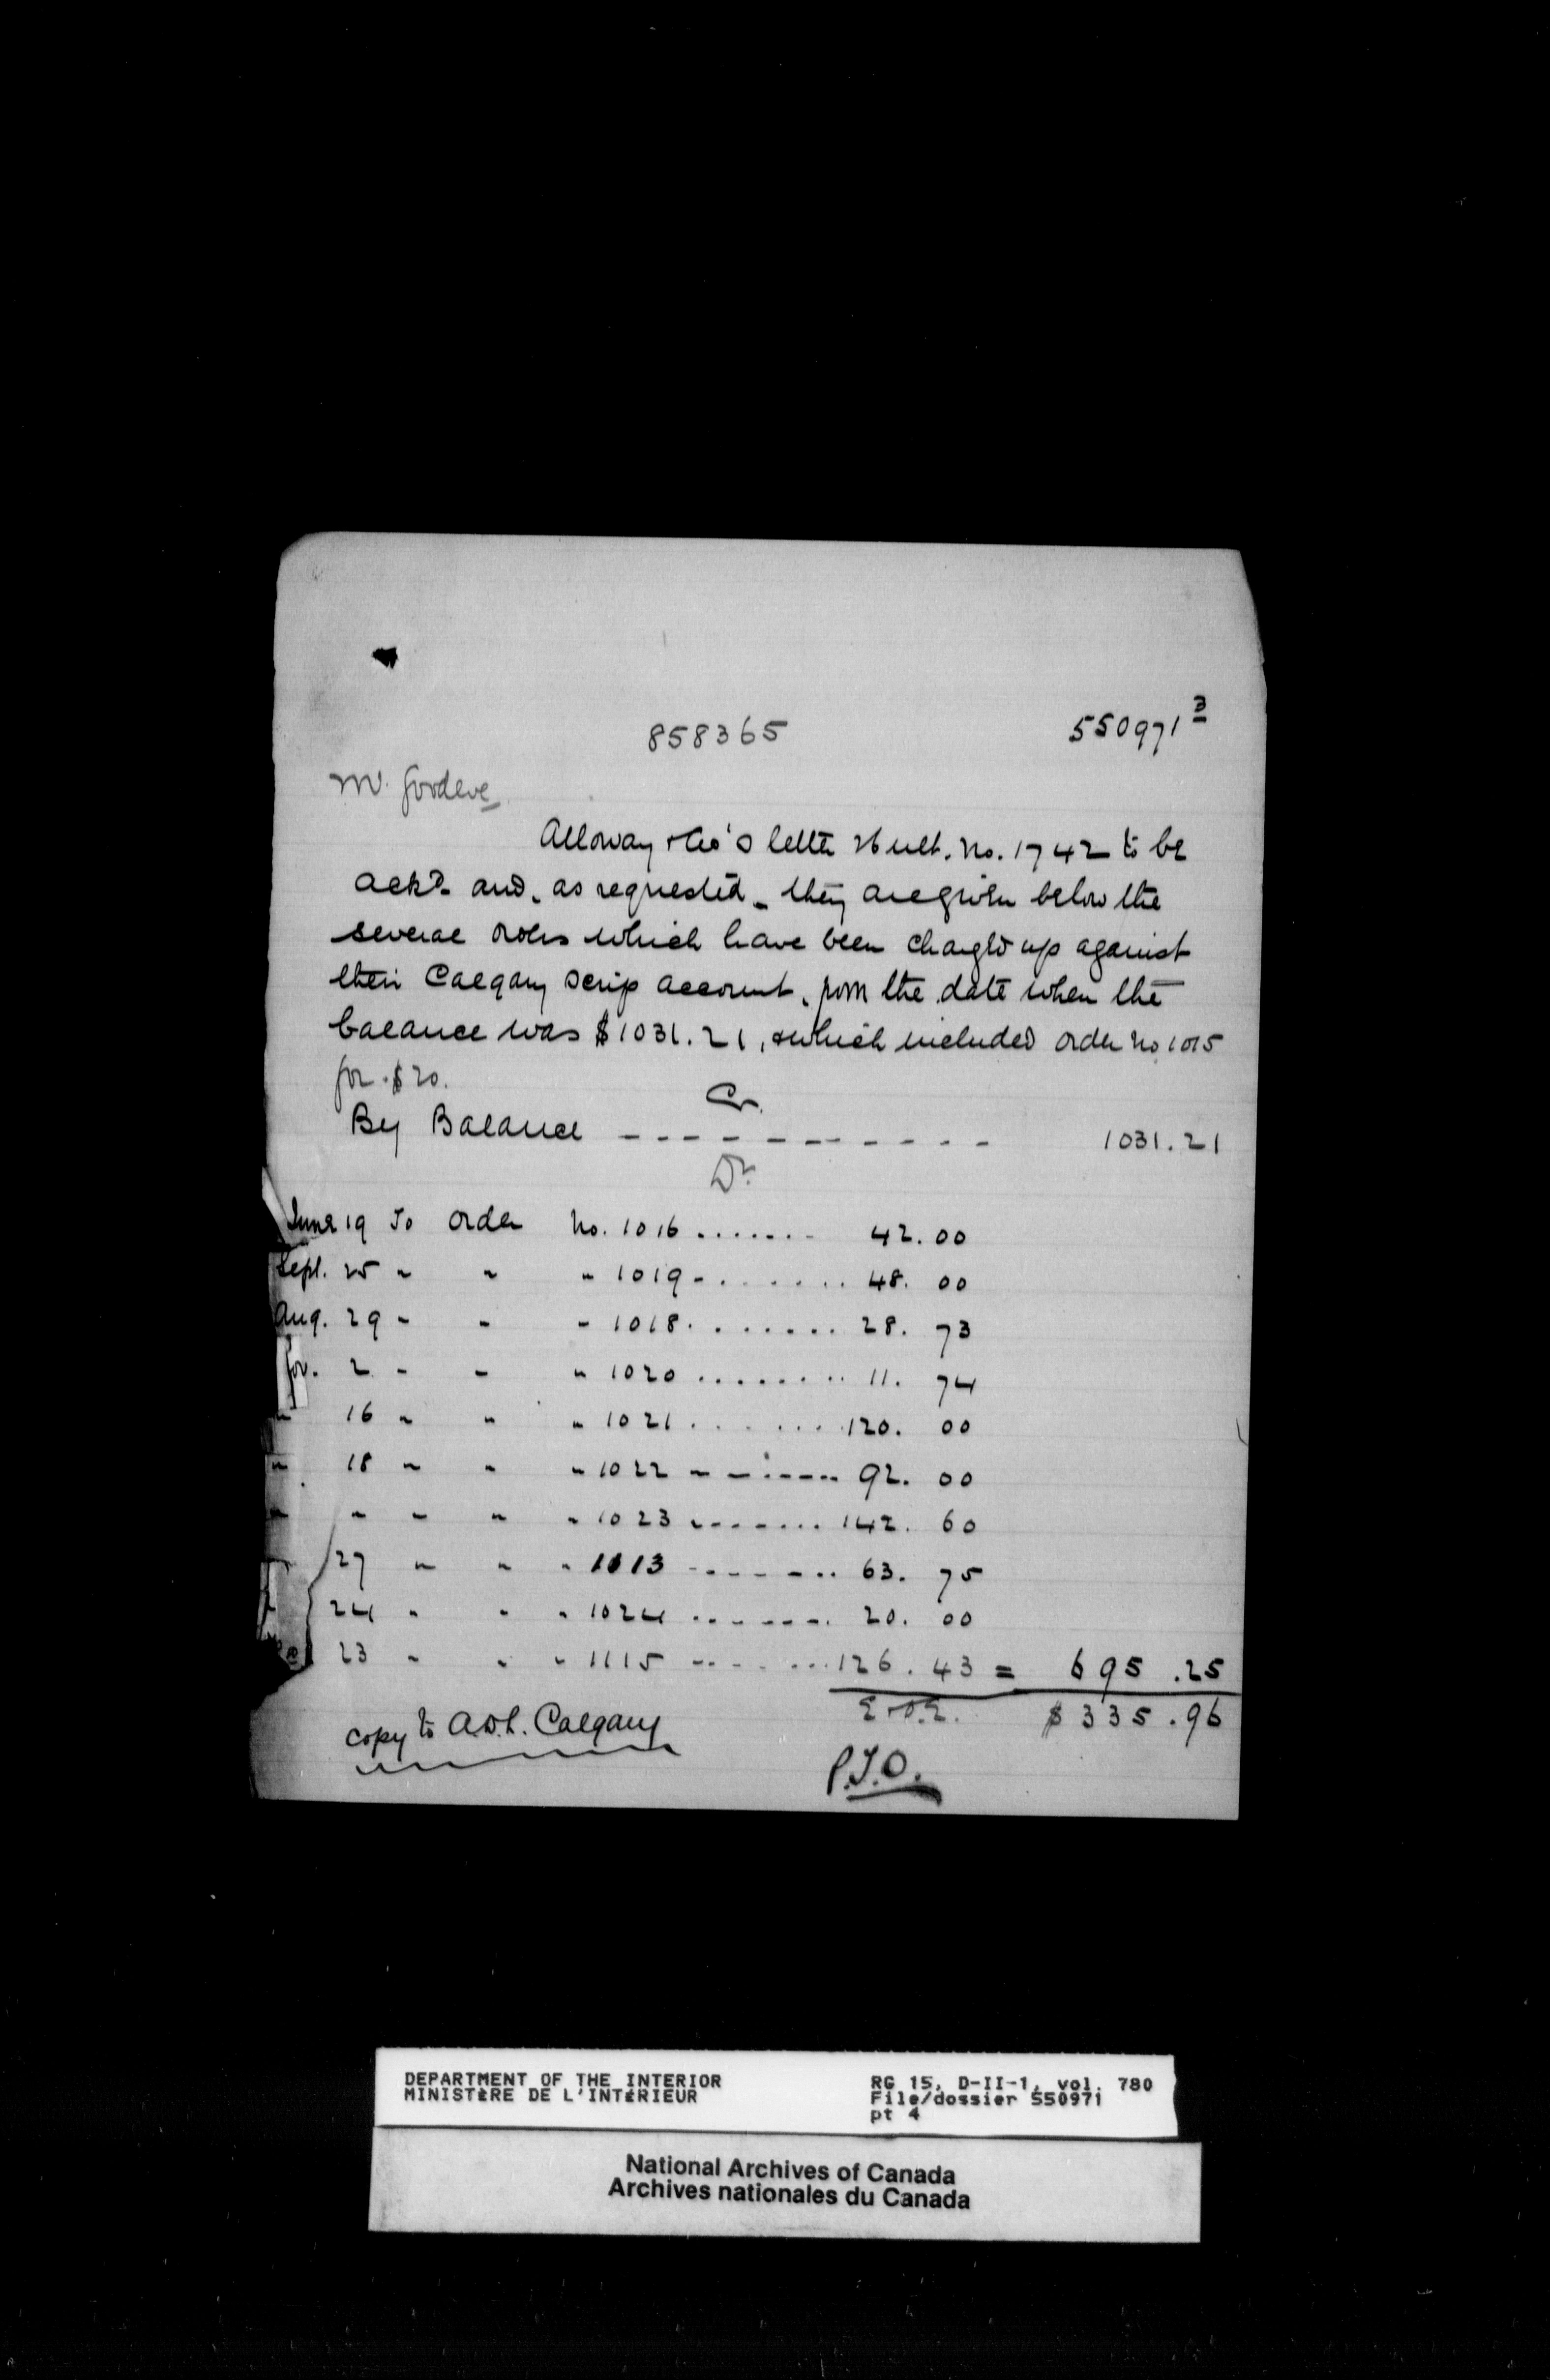 858365
550971 3
Mr. Goodeve
Alloway & Co's letter 26 ult. No. 1742 to be
ackd. and, as requested - they are given below the
several orders which have been charged up against
their Calgary Scrip account, from the date when the
balance was $1031.21, & which included order No 1015
for $20.
Cr.
By Balance ----------- 1031.21
Dr.
June 19 To order No. 1016 ....... 42.00
Sept. 25 " " " 1019 ....... 48.00
Aug. 29 " " " 1018 ....... 28.73
2 " " " 1020 ........ 11.74
" 16 " " " 1021 ....... 120.00
" 18 " " " 1022 ------- 92.00
" " " " " 1023 ------- 142.60
" 27 " " " 1013 ------- 63.75
24 " " " 1024 ------- 20.00
23 " " " 1115 ------- 126.43 = 695.25
E.&O.E. $335.96
copy to A.D.L. Calgary
P.T.O.
DEPARTMENT OF THE INTERIOR
MINISTÈRE DE L'INTÉRIEUR
RG 15, D-II-1, vol. 780
File/dossier 550971
pt 4
National Archives of Canada
Archives nationales du Canada